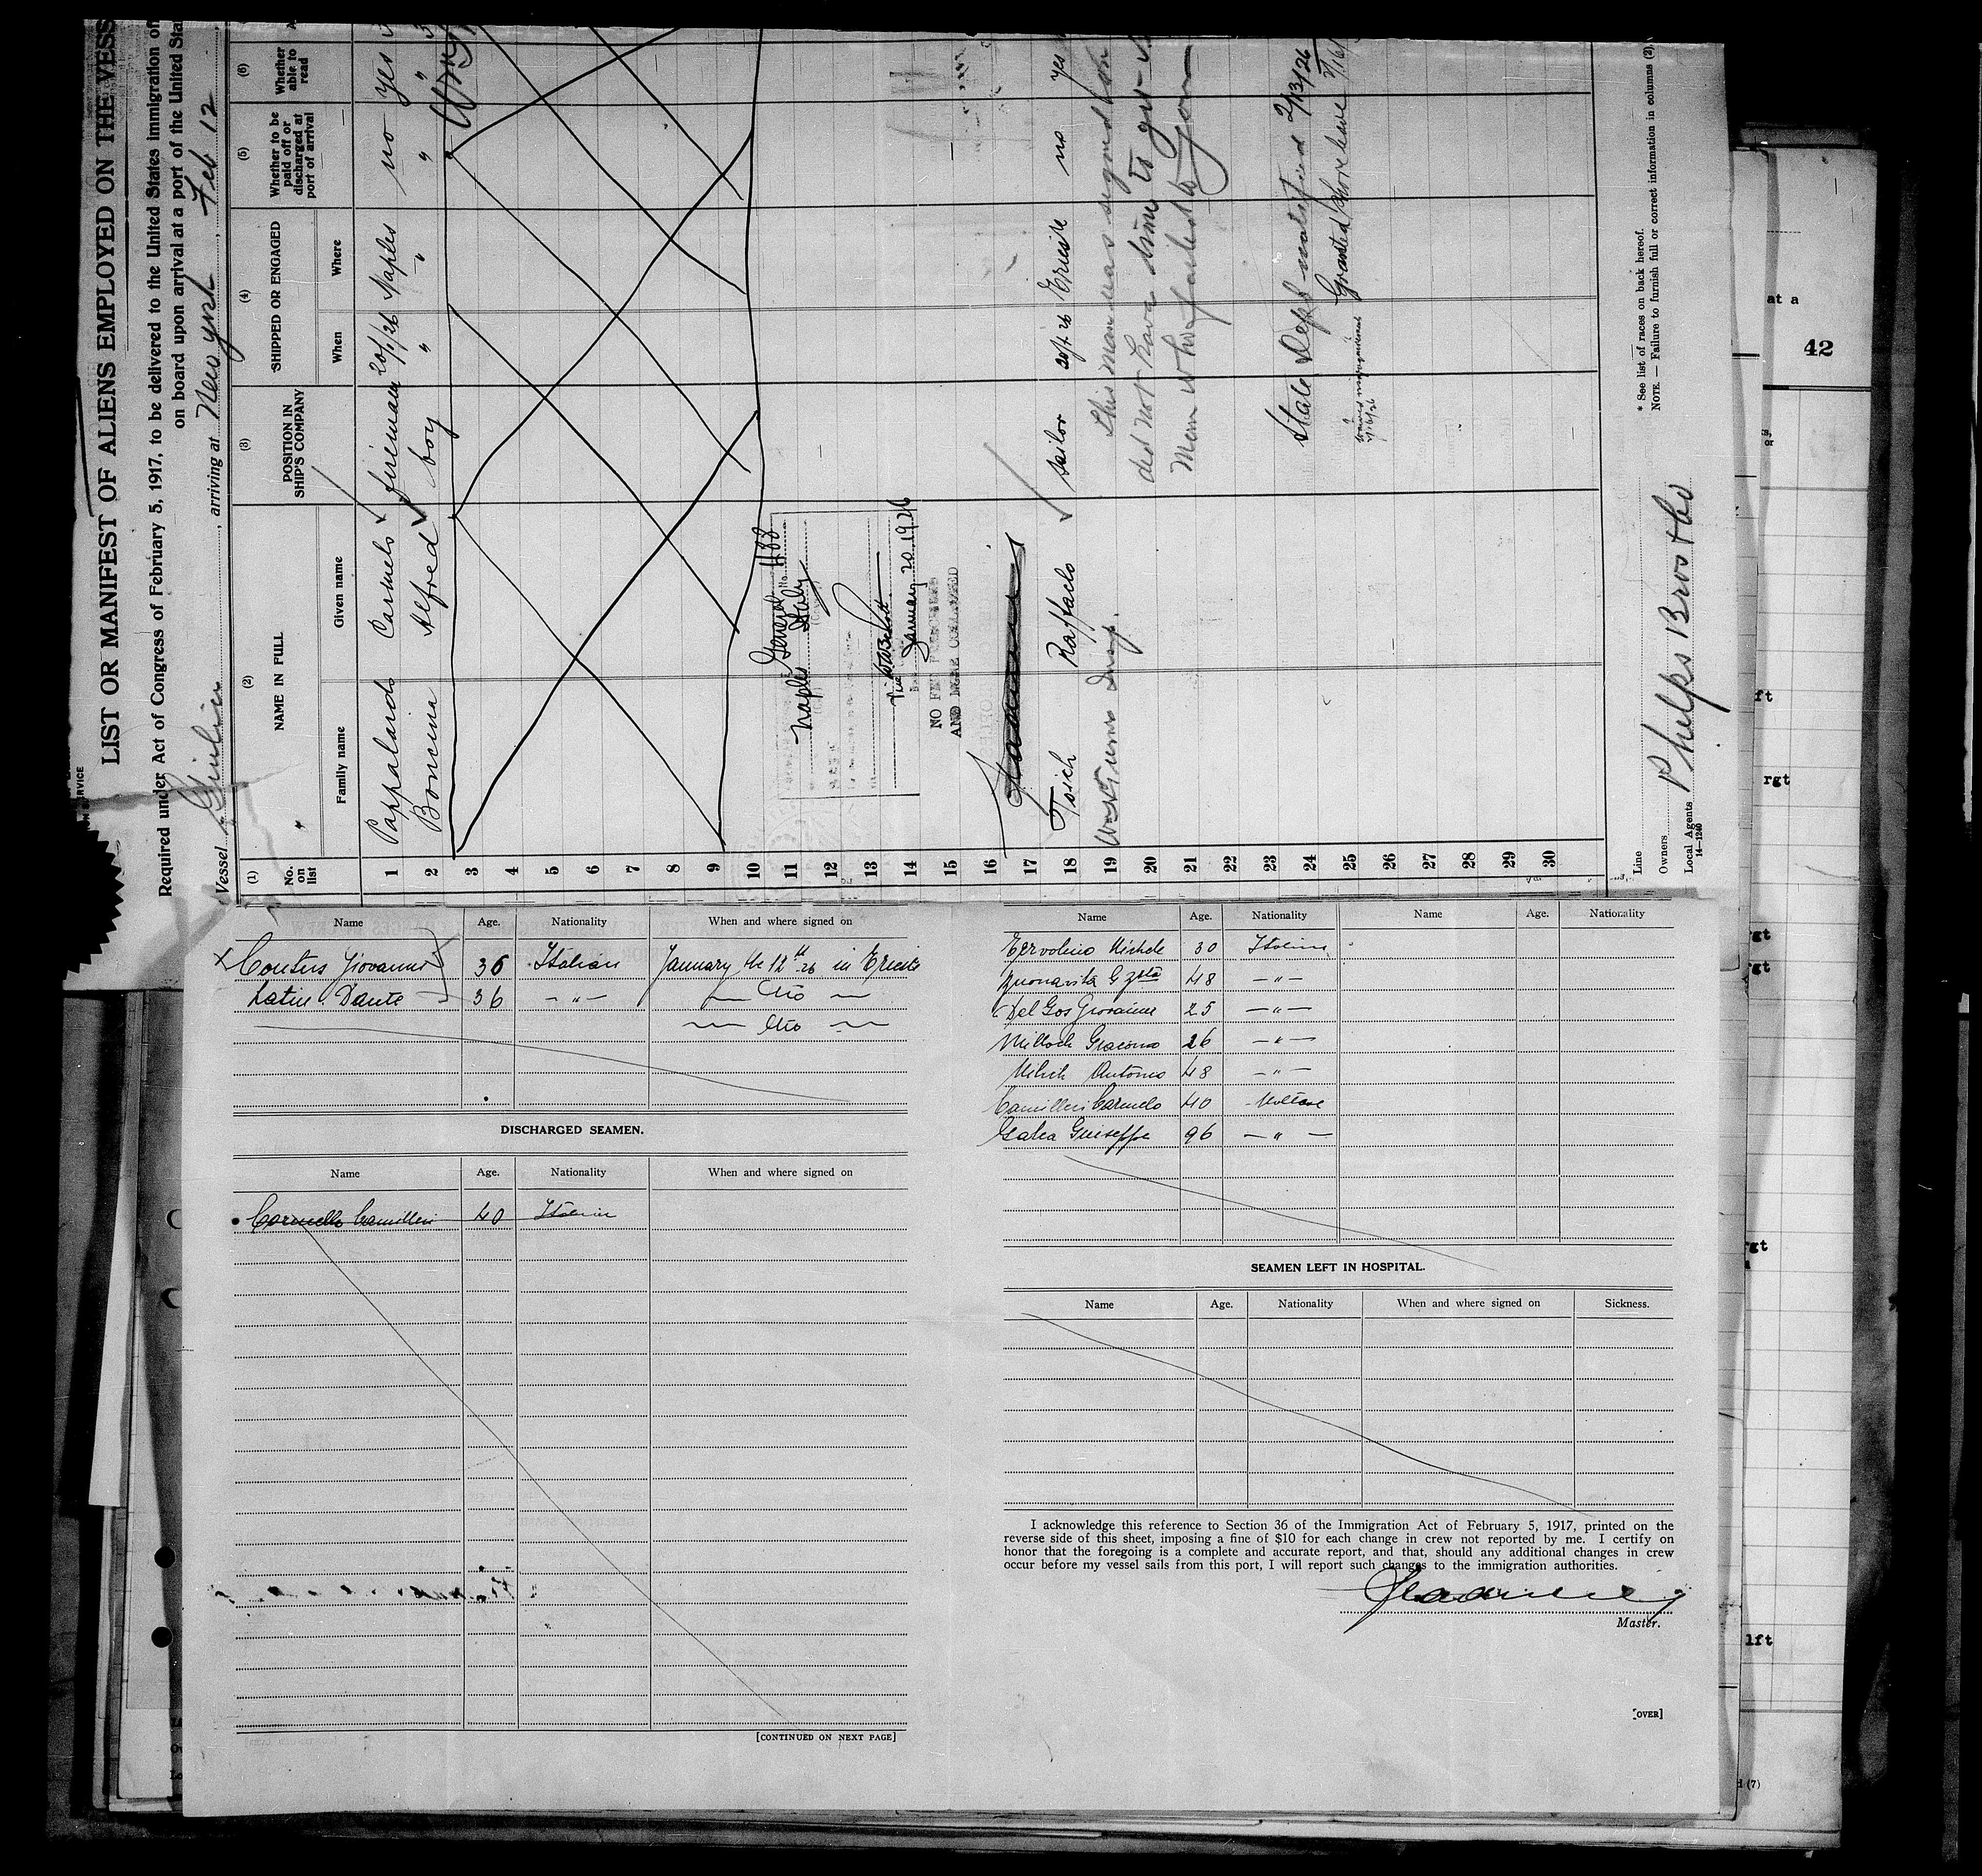 LIST OR MANIFEST OF ALIENS EMPLOYED ON THE VESS
Required under Act of Congress of February 5, 1917, to be delivered to the United States immigration of
on board upon arrival at a port of the United Sta
Vessel Giulia, arriving at New york, Feb 12
(1) (2) (3) (4) (5) (6)
No. on list
NAME IN FULL
Family name
Given name
POSITION IN SHIP'S COMPANY
SHIPPED OR ENGAGED
When
Where
Whether to be paid off or discharged at port of arrival
Whether able to read
1 Pappalardo Carmelo fireman 20/1/26 Naples no yes
2 Boncina Alfred boy " " " "
3
4
5
6
7
8
9
10
11
12
13
14
15
16
17
18 Tosich Raffaelo sailor 20/1 26 Trieste no yes
19
20
21
22
23
24
25
26
27
28
29
30
General 488
Naples Italy
January 20 1926
NO FEE PRESCRIBED
AND NONE COLLECTED
This man was signed on
did not have time to get
man who failed to join
State Dept notified 2/13/26
Granted shore leave 2/16/
Line
Owners
Local Agents Phelps Bros & Co
14—1240
* See list of races on back hereof.
NOTE. — Failure to furnish full or correct information in columns (2)
SERVICE
Name Age. Nationality When and where signed on
Contus Giovanni 36 Italian January the 12th 26 in Trieste
Latin Dante 36 — " — — dto —
— dto —
DISCHARGED SEAMEN.
Name Age. Nationality When and where signed on
Carmello Camilleri 40 Italian
[CONTINUED ON NEXT PAGE]
Name Age. Nationality Name Age. Nationality
Ervolino Michele 30 Italian
48 — " —
Del Gos Giovanni 25 — " —
Milloch Giacomo 26 — " —
Milich Antonio 48 — " —
Camilleri Carmelo 40 Maltese
Galea Guiseppe 96 — " —
SEAMEN LEFT IN HOSPITAL.
Name Age. Nationality When and where signed on Sickness.
I acknowledge this reference to Section 36 of the Immigration Act of February 5, 1917, printed on the
reverse side of this sheet, imposing a fine of $10 for each change in crew not reported by me. I certify on
honor that the foregoing is a complete and accurate report, and that, should any additional changes in crew
occur before my vessel sails from this port, I will report such changes to the immigration authorities.
Master.
[OVER]
at a
42
ft
rgt
rgt
rgt
rgt
lft
d (7)